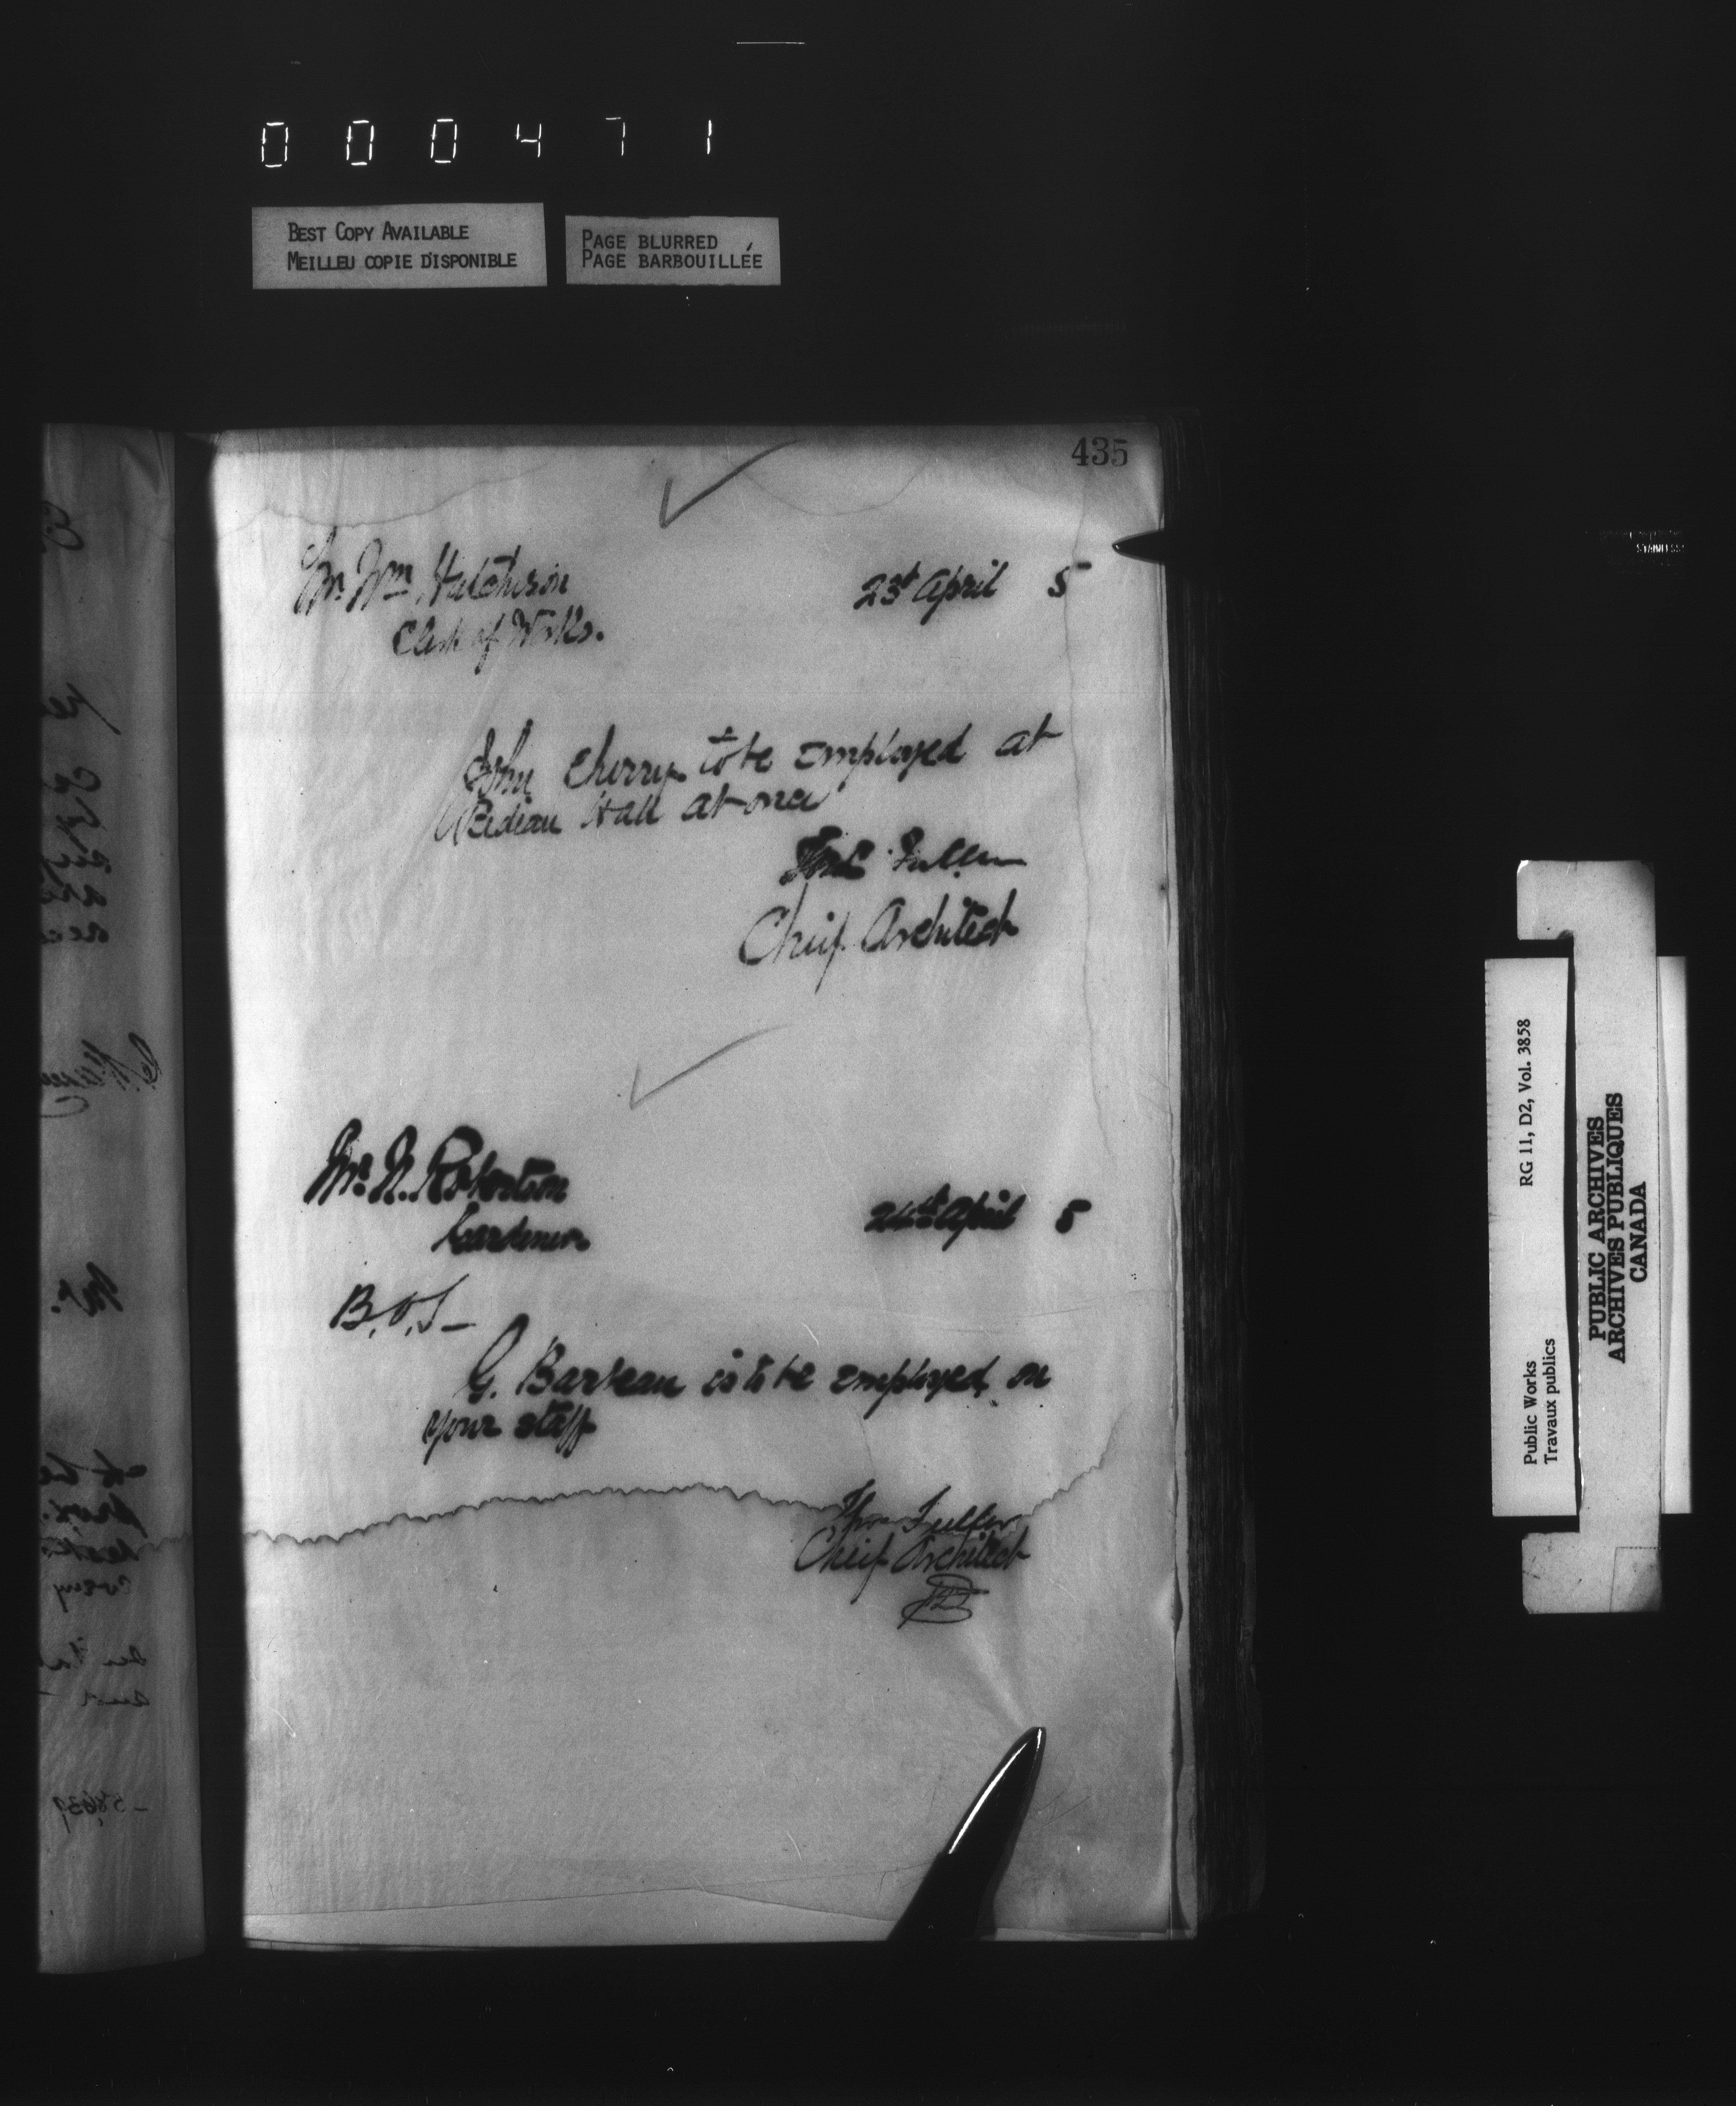 000471
BEST COPY AVAILABLE
MEILLEU COPIE D'ISPONIBLE
PAGE BLURRED
PAGE BARBOUILLÉE
435
Mr. Wm. Hutchison
Clerk of Works.
23d April 5
John Cherry to be employed at
Rideau Hall at once
Thos Fuller
Chief Architect
Mr. N. Robertson
Gardener
24th April 5
B.O.S—
G. Barbeau is to be employed on
your staff
Thos Fuller
Chief Architect
RG 11, D2, Vol. 3858
Public Works
Travaux publics
PUBLIC ARCHIVES
ARCHIVES PUBLIQUES
CANADA